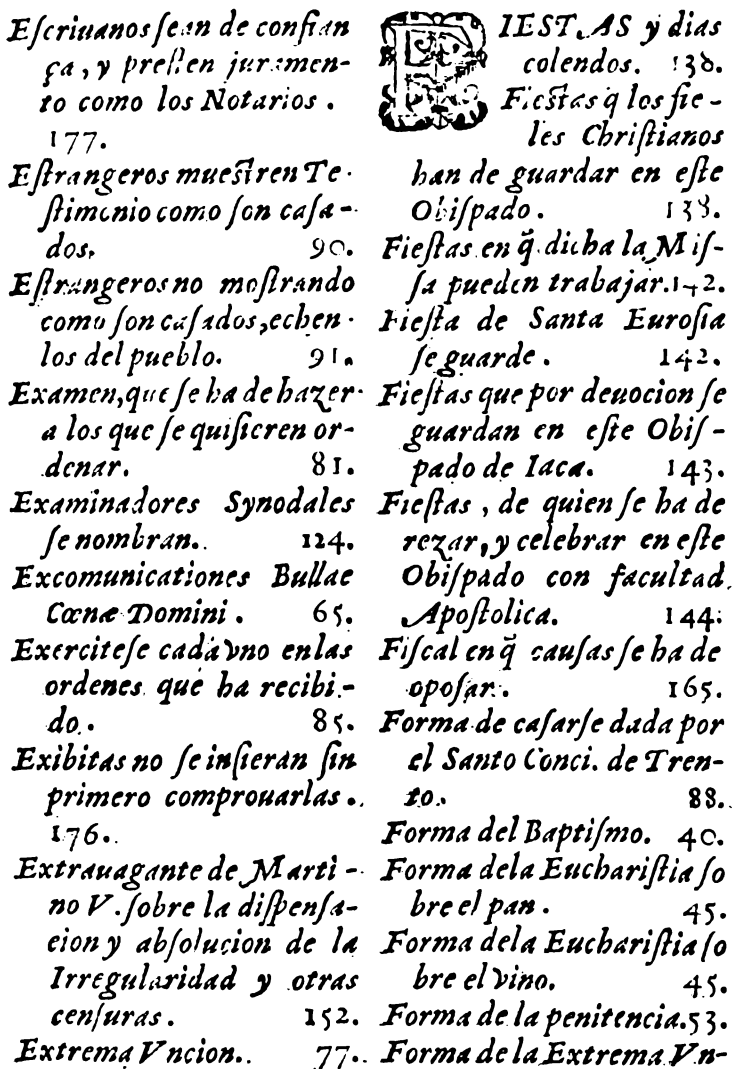 Eſcriuanos ſean de confian
ça, y preſten juramen-
to como los Notarios.
177.
Eſtrangeros mueſtren Te-
ſtimonio como ſon caſa-
dos. 90.
Eſtrangeros no moſtrando
como ſon caſados, echen-
los del pueblo. 91.
Examen, que ſe ha de hazer
a los que ſe quiſieren or-
denar. 81.
Examinadores Synodales
ſe nombran. 124.
Excomunicationes Bullae
Cœnæ Domini. 65.
Exerciteſe cada vno en las
ordenes que ha recibi-
do. 85.
Exibitas no ſe inſieran ſin
primero comprouarlas.
176.
Extrauagante de Marti-
no V. ſobre la diſpenſa-
cion y abſolucion de la
Irregularidad y otras
cenſuras. 152.
Extrema Vncion. 77.
FIESTAS y dias
colendos. 138.
Fieſtas q̃ los fie-
les Chriſtianos
han de guardar en eſte
Obiſpado. 138.
Fieſtas en q̃ dicha la Miſ-
ſa pueden trabajar. 142.
Fieſta de Santa Euroſia
ſe guarde. 142.
Fieſtas que por deuocion ſe
guardan en eſte Obiſ-
pado de Iaca. 143.
Fieſtas, de quien ſe ha de
rezar, y celebrar en eſte
Obiſpado con facultad
Apoſtolica. 144.
Fiſcal en q̃ cauſas ſe ha de
opoſar. 165.
Forma de caſarſe dada por
el Santo Conci. de Tren-
to. 88.
Forma del Baptiſmo. 40.
Forma dela Euchariſtia ſo
bre el pan. 45.
Forma dela Euchariſtia ſo
bre el vino. 45.
Forma de la penitencia. 53.
Forma de la Extrema Vn-